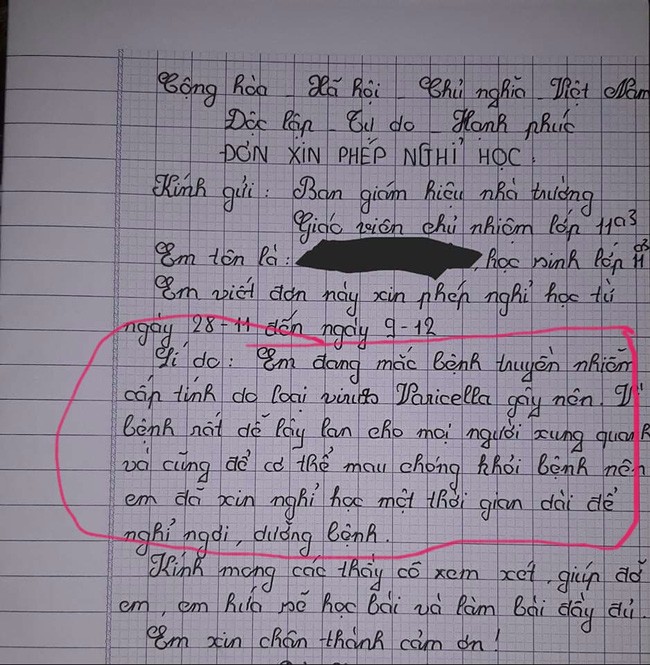 Cộng hòa - Xã hội - Chủ nghĩa - Việt Nam
Độc lập - Tự do - Hạnh phúc
ĐƠN XIN PHÉP NGHỈ HỌC.
Kính gửi: Ban giám hiệu nhà trường
Giáo viên chủ nhiệm lớp 11a3
Em tên là: , học sinh lớp 11a3
Em viết đơn này xin phép nghỉ học từ
ngày 28-11 đến ngày 9-12
Lí do: Em đang mắc bệnh truyền nhiễm
cấp tính do loại virus Varicella gây nên. Vì
bệnh rất dễ lây lan cho mọi người xung quanh
và cũng để có thể mau chóng khỏi bệnh nên
em đã xin nghỉ học một thời gian dài để
nghỉ ngơi, dưỡng bệnh.
Kính mong các thầy cô xem xét, giúp đỡ
em, em hứa sẽ học bài và làm bài đầy đủ.
Em xin chân thành cảm ơn!